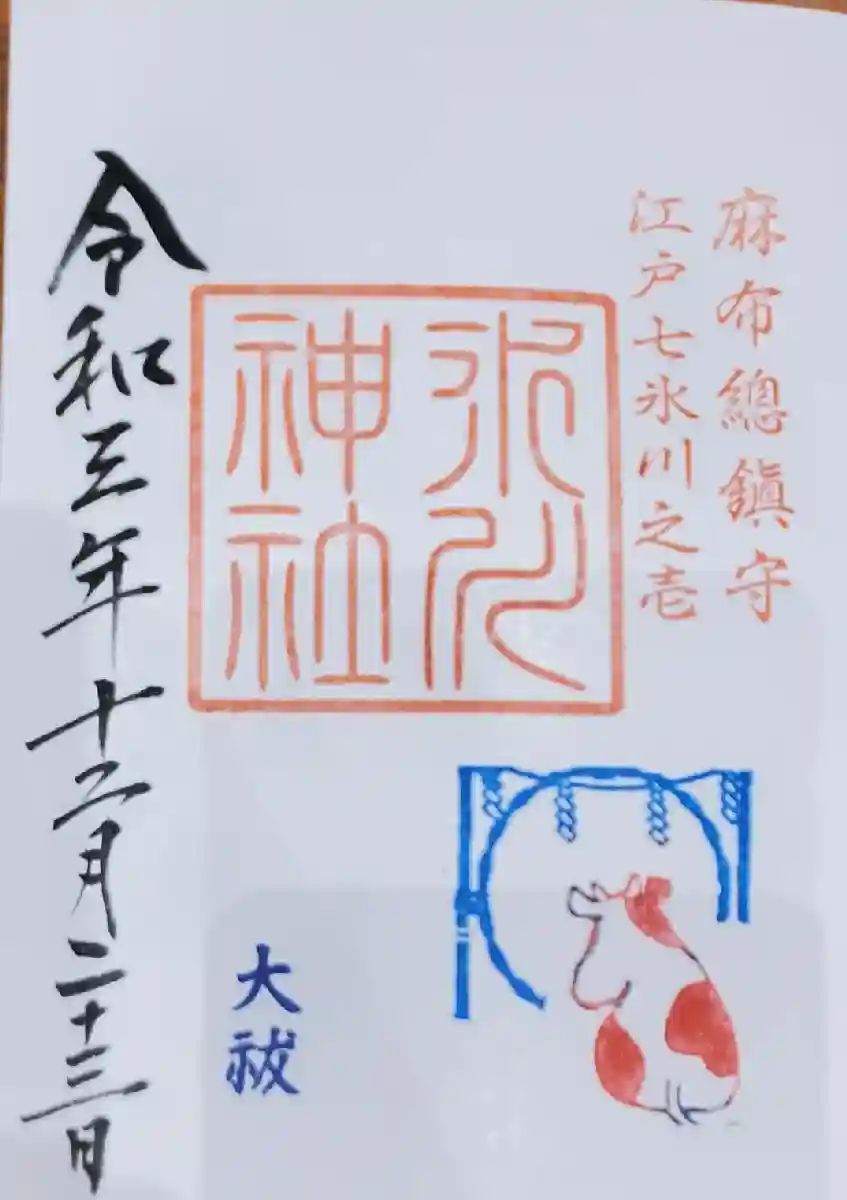 麻布總鎭守
江戸七氷川之壱
氷川
神社
大祓
令和三年十二月二十三日